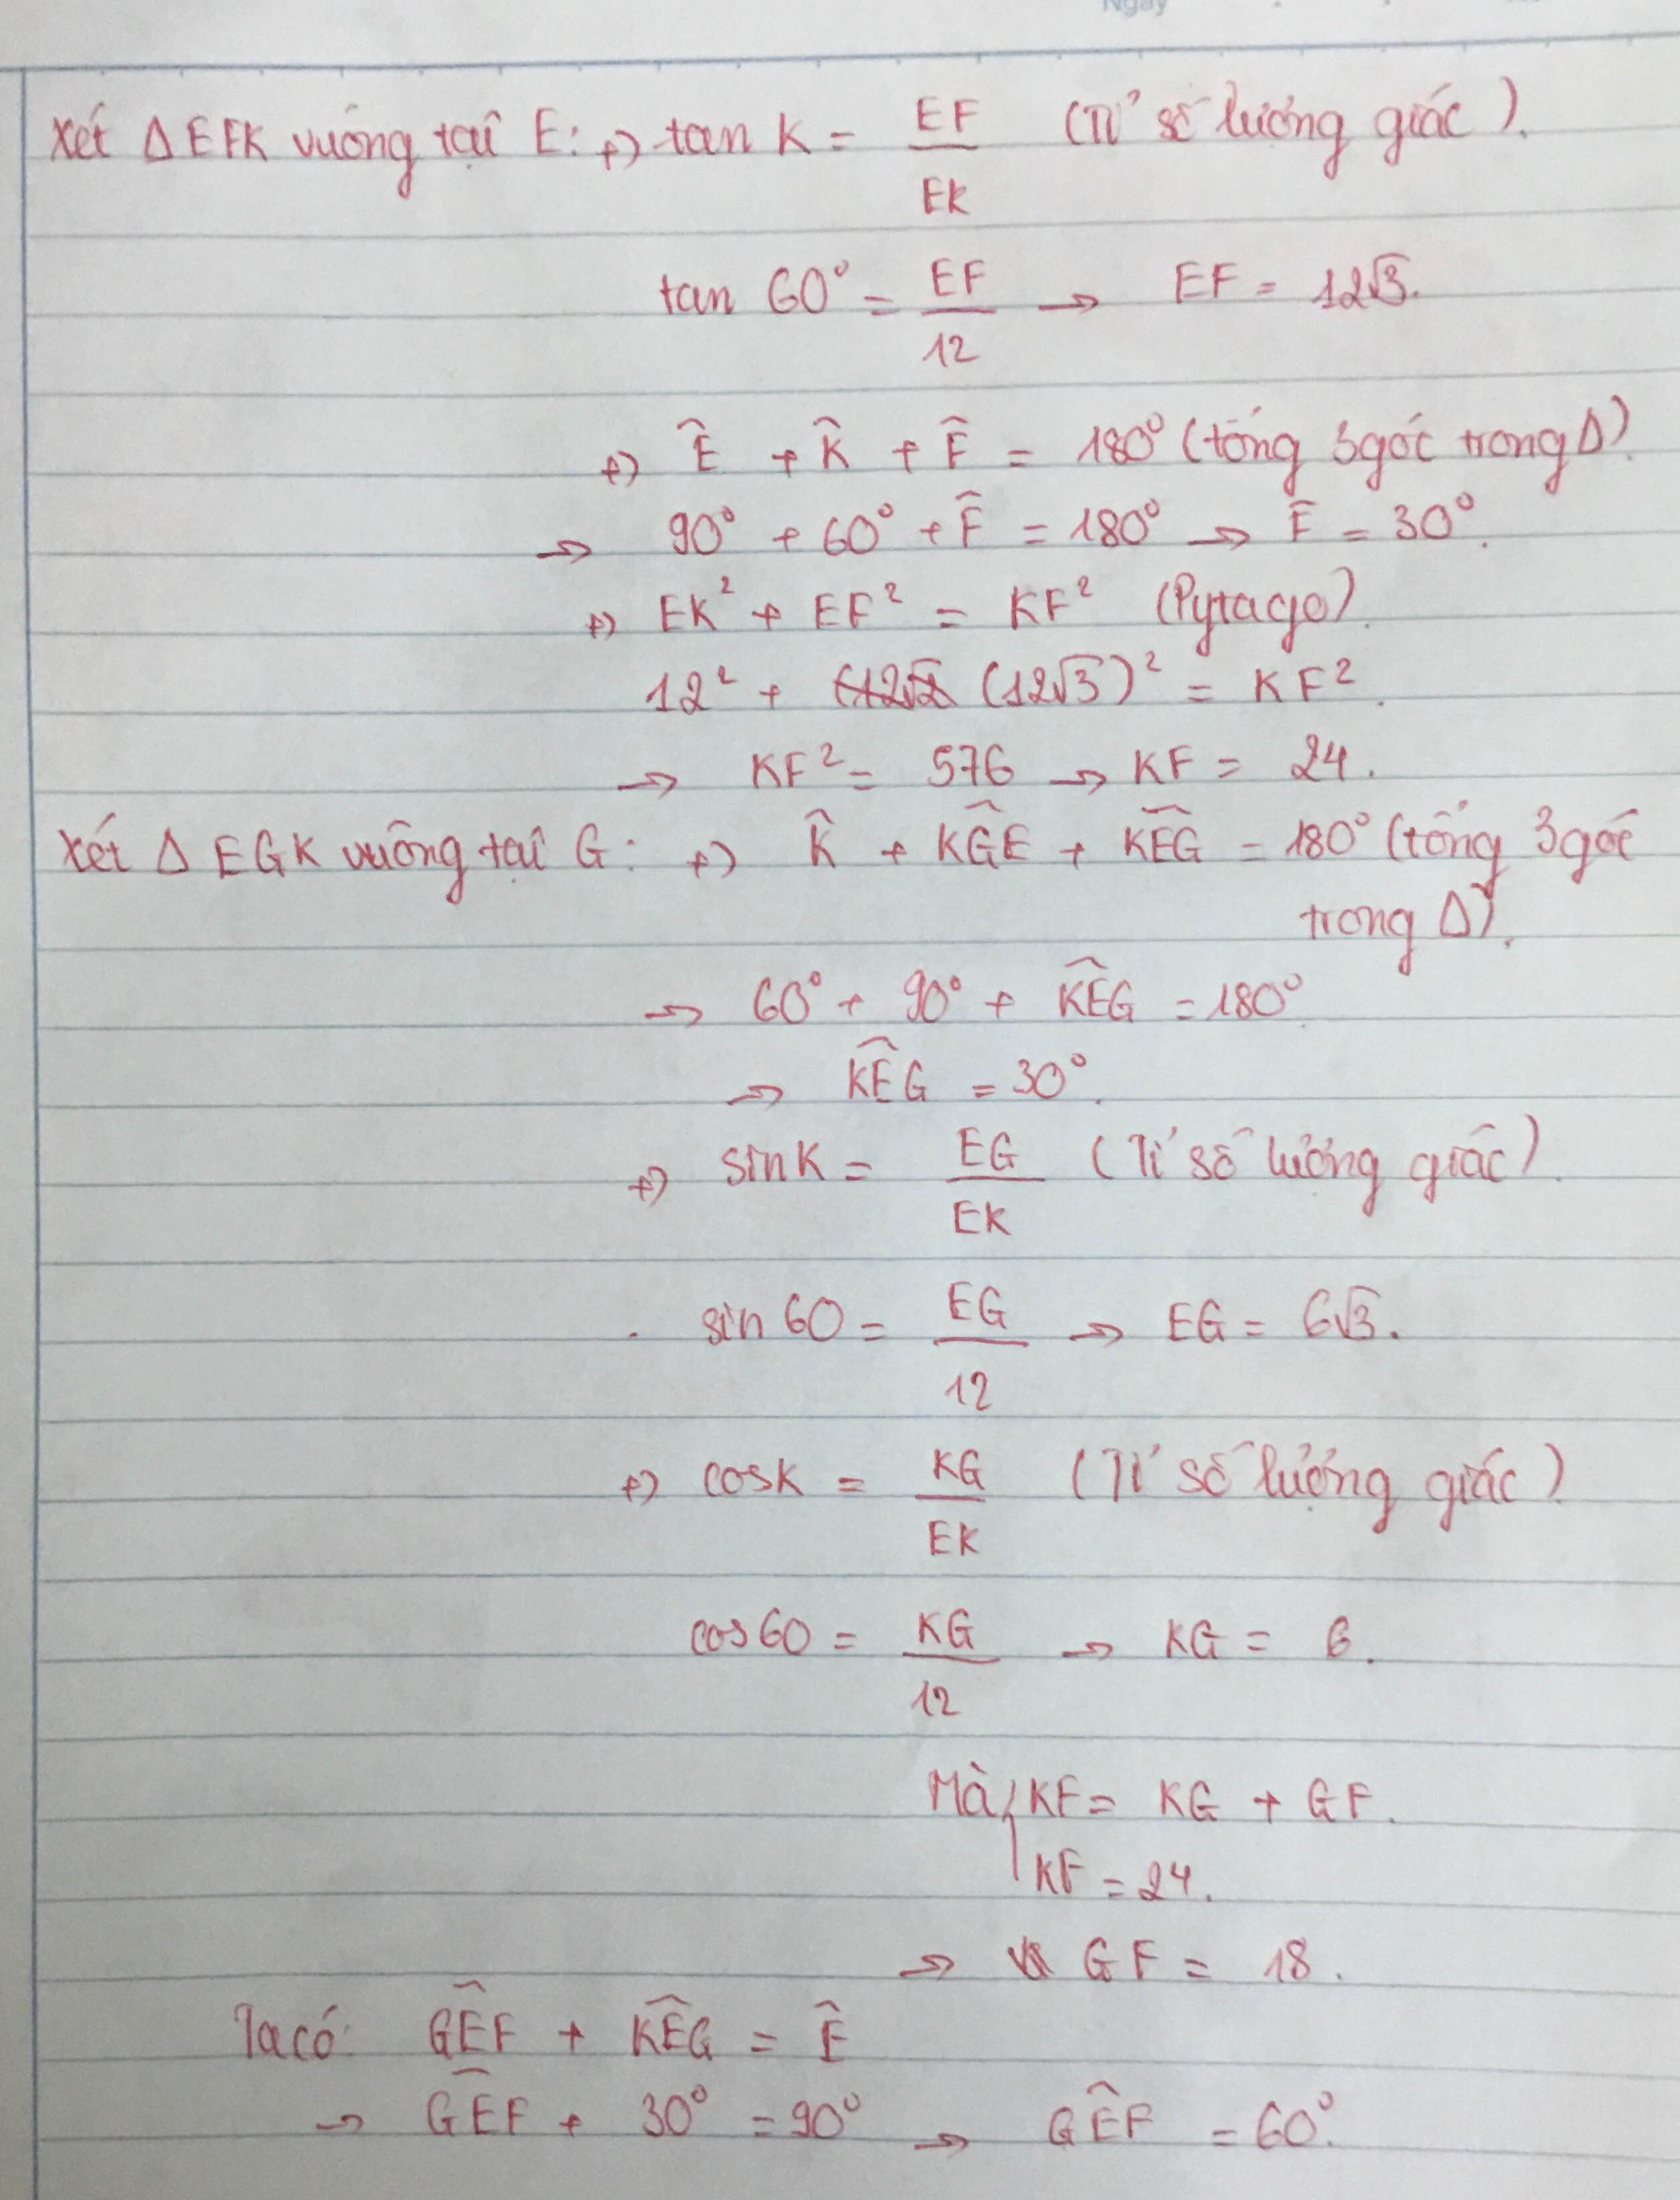 Ngày
Xét ΔEFK vuông tại E: +) tan K = EF/EK (Tỉ số lượng giác).
tan 60° = EF/12 → EF = 12√3.
+) Ê + K̂ + F̂ = 180° (tổng 3 góc trong Δ).
→ 90° + 60° + F̂ = 180° → F̂ = 30°.
+) EK² + EF² = KF² (Pytago).
12² + (12√3)² = KF².
→ KF² = 576 → KF = 24.
Xét Δ EGK vuông tại G: +) K̂ + KĜE + KÊG = 180° (tổng 3 góc
trong Δ).
→ 60° + 90° + KÊG = 180°
→ KÊG = 30°.
+) sin K = EG/EK (Tỉ số lượng giác).
sin 60 = EG/12 → EG = 6√3.
+) cos K = KG/EK (Tỉ số lượng giác)
cos 60 = KG/12 → KG = 6.
Mà KF = KG + GF.
KF = 24.
→ GF = 18.
Ta có: GÊF + KÊG = Ê
→ GÊF + 30° = 90° → GÊF = 60°.